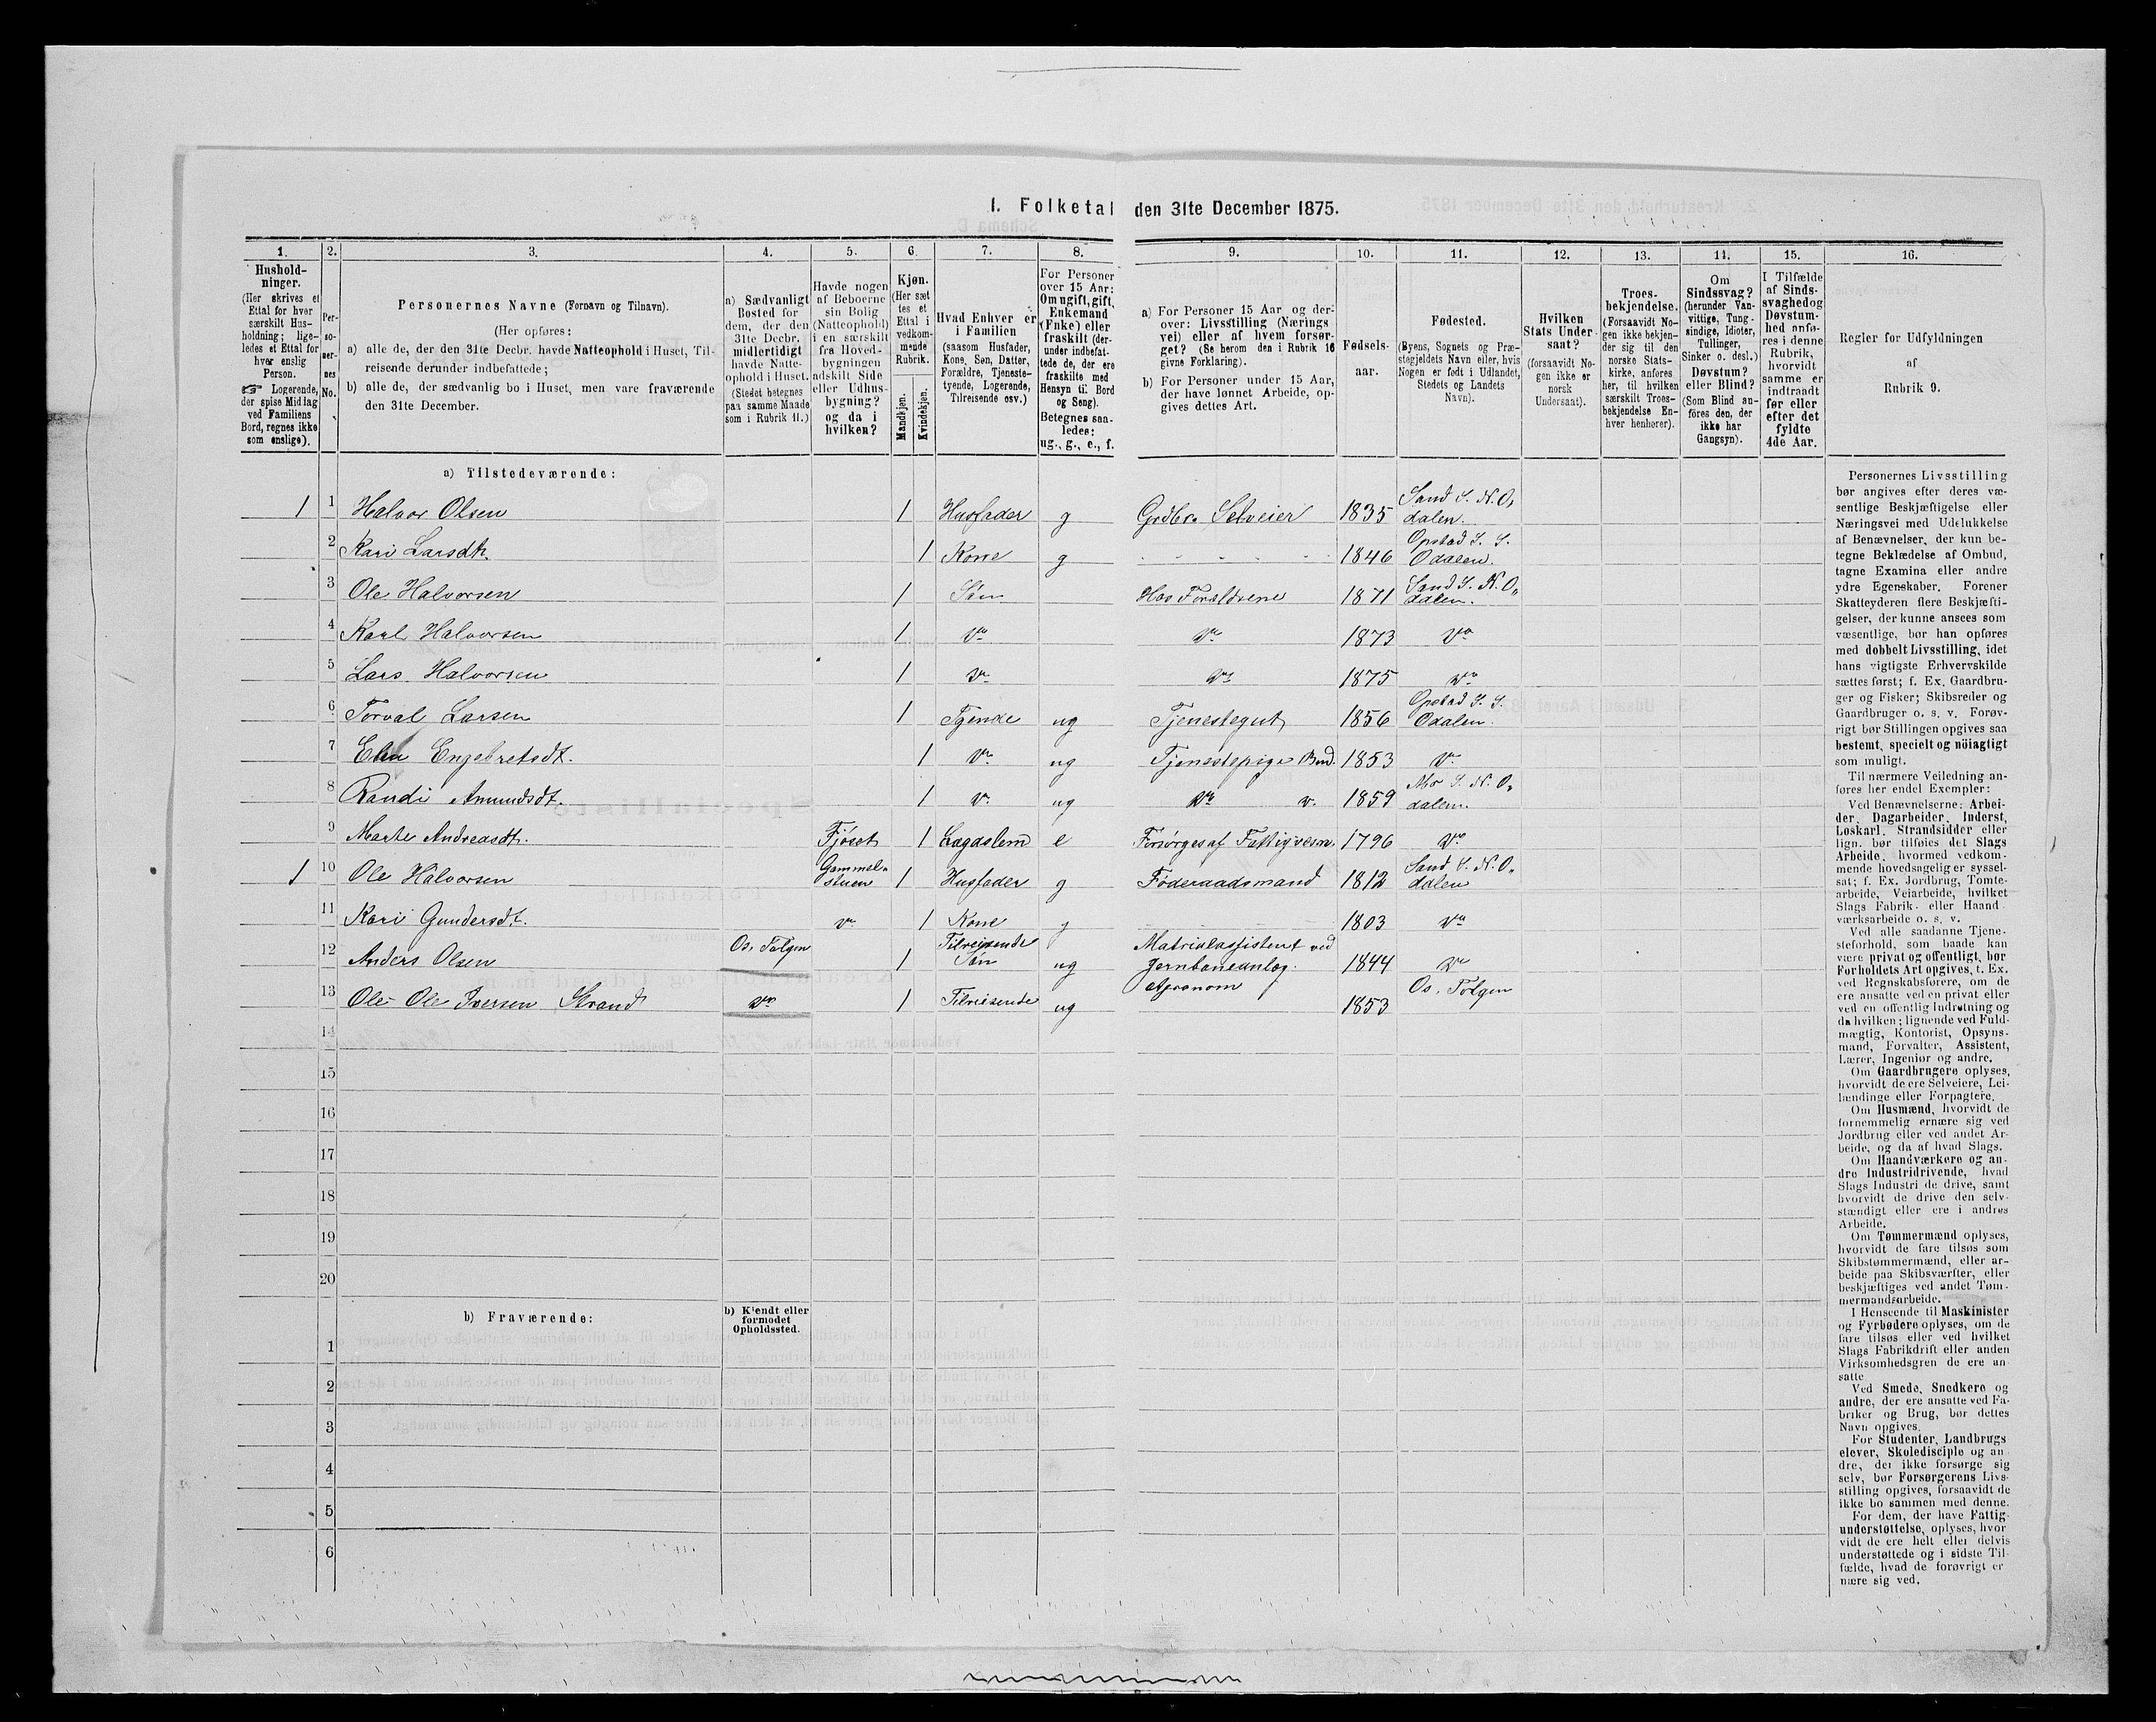 1. Folketal den 31te December 1875.
1. 2. 3. 4. 5. 6. 7. 8. 9. 10. 11. 12. 13. 14. 15. 16.
Hushold-
ninger.
(Her skrives et
Ettal for hver
særskilt Hus-
holdning; lige-
ledes et Ettal for
hver enslig
Person.
☞ Logerende,
der spise Middag
ved Familiens
Bord, regnes ikke
som enslige).
Per-
so-
ner-
nes
No.
Personernes Navne (Fornavn og Tilnavn).
(Her opføres:
a) alle de, der den 31te Decbr. havde Natteophold i Huset, Til-
reisende derunder indbefattede;
b) alle de, der sædvanlig bo i Huset, men vare fraværende
den 31te December.
a) Sædvanligt
Bosted for
dem, der den
31te Decbr.
midlertidigt
havde Natte-
ophold i Huset.
(Stedet betegnes
paa samme Maade
som i Rubrik 11.)
Havde nogen
af Beboerne
sin Bolig
(Natteophold)
i en særskilt
fra Hoved-
bygningen
adskilt Side
eller Udhus-
bygning?
og da i
hvilken?
Kjøn.
(Her sæt
tes et
Ettal i
vedkom-
mende
Rubrik.
Mandkjøn.
Kvindekjøn.
Hvad Enhver er
i Familien
(saasom Husfader,
Kone, Søn, Datter,
Forældre, Tjeneste-
tyende, Logerende,
Tilreisende osv.)
For Personer
over 15 Aar:
Om ugift, gift,
Enkemand
(Enke) eller
fraskilt (der-
under indbefat-
tede de, der ere
fraskilte med
Hensyn til Bord
og Seng).
Betegnes saa-
ledes:
ug., g., e., f.
a) For Personer 15 Aar og der-
over: Livsstilling (Nærings
vei) eller af hvem forsør-
get? (Se herom den i Rubrik 16
givne Forklaring).
b) For Personer under 15 Aar,
der have lønnet Arbeide, op-
gives dettes Art.
Fødsels-
aar.
Fødested.
(Byens, Sognets og Præ-
stegjeldets Navn eller, hvis
Nogen er født i Udlandet,
Stedets og Landets
Navn).
Hvilken
Stats Under-
saat?
(forsaavidt No-
gen ikke er
norsk
Undersaat).
Troes-
bekjendelse.
(Forsaavidt No-
gen ikke bekjen-
der sig til den
norske Stats-
kirke, anføres
her, til hvilken
særskilt Troes-
bekjendelse En-
hver henhører).
Om
Sindssvag?
(herunder Van-
vittige, Tung-
sindige, Idioter,
Tullinger,
Sinker o. desl.)
Døvstum?
eller Blind?
(Som Blind an-
føres den, der
ikke har
Gangsyn).
I Tilfælde
af Sinds-
svaghed og
Døvstum-
hed anfø-
res i denne
Rubrik,
hvorvidt
samme er
indtraadt
før eller
efter det
fyldte
4de Aar.
Regler for Udfyldningen
af
Rubrik 9.
a) Tilstedeværende:
1 1 Halvor Olsen 1 Husfader g Grdbr. Selveier 1835 Sand S. N. O,
dalen.
2 Kari Larsdtr. 1 Kone g 1846 Opstad S. S.
Odalen.
3 Ole Halvorsen 1 Søn Hos Forældrene 1871 Sand S. N. O,
dalen.
4 Karl Halvorsen 1 do do 1873 do
5 Lars Halvorsen 1 do do 1875 do
6 Torval Larsen 1 Tyende ug Tjenestegut 1856 Opstad S. S.
Odalen.
7 Elen Engebretsdt. 1 do ug Tjenestepige Bud. 1853 do
8 Randi Amundsdt. 1 do ug do do 1859 Mo S. N. O,
dalen.
9 Marte Andreasdt. Fjøset 1 Lægdslem e Forsørges af Fattigvesn. 1796 do
1 10 Ole Halvorsen Gammel-
stuen 1 Husfader g Føderaadsmand 1812 Sand S. N. O,
dalen
11 Kari Gundersdt. do 1 Kone g 1803 do
12 Anders Olsen Os, Tolgen 1 Tilreisende
Søn ug Matrialassistent ved
Jernbaneanlæg. 1844 do
13 Ole Ole Iversen Strand do 1 Tilreisende ug Agronom 1853 Os, Tolgen
14
15
16
17
18
19
20
b) Fraværende:
b) Kjendt eller
formodet
Opholdssted.
1
2
3
4
5
6
Personernes Livsstilling
bør angives efter deres væ-
sentlige Beskjæftigelse eller
Næringsvei med Udelukkelse
af Benævnelser, der kun be-
tegne Beklædelse af Ombud,
tagne Examina eller andre
ydre Egenskaber. Forener
Skatteyderen flere Beskjæfti-
gelser, der kunne ansees som
væsentlige, bør han opføres
med dobbelt Livsstilling, idet
hans vigtigste Erhvervskilde
sættes først; f. Ex. Gaardbru-
ger og Fisker; Skibsreder og
Gaardbruger o. s. v. Forøv-
rigt bør Stillingen opgives saa
bestemt, specielt og nöiagtigt
som muligt.
Til nærmere Veiledning an-
føres her endel Exempler:
Ved Benævnelserne: Arbei-
der, Dagarbeider, Inderst,
Løskarl, Strandsidder eller
lign. bør tilføies det Slags
Arbeide, hvormed vedkom-
mende hovedsagelig er syssel-
sat; f. Ex. Jordbrug, Tomte-
arbeide, Veiarbeide, hvilket
Slags Fabrik- eller Haand-
værksarbeide o. s. v.
Ved alle saadanne Tjene-
steforhold, som baade kan
være privat og offentligt, bør
Forholdets Art opgives, t. Ex.
ved Regnskabsførere, om de
ere ansatte ved en privat eller
ved en offentlig Indretning og
da hvilken; lignende ved Fuld-
mægtig, Kontorist, Opsyns-
mand, Forvalter, Assistent,
Lærer, Ingeniør og andre.
Om Gaardbrugere oplyses,
hvorvidt de ere Selveiere, Lei-
lændinge eller Forpagtere.
Om Husmænd, hvorvidt de
fornemmelig ernære sig ved
Jordbrug eller ved andet Ar-
beide, og da af hvad Slags.
Om Haandværkere og an-
dre Industridrivende, hvad
Slags Industri de drive, samt
hvorvidt de drive den selv-
stændigt eller ere i andres
Arbeide.
Om Tømmermænd oplyses,
hvorvidt de fare tilsøs som
Skibstømmermænd, eller ar-
beide paa Skibsværfter, eller
beskjæftiges ved andet Tøm-
mermandsarbeide.
I Henseende til Maskinister
og Fyrbødere oplyses, om de
fare tilsøs eller ved hvilket
Slags Fabrikdrift eller anden
Virksomhedsgren de ere an-
satte
Ved Smede, Snedkere og
andre, der ere ansatte ved Fa-
briker og Brug, bør dettes
Navn opgives.
For Studenter, Landbrugs
elever, Skoledisciple og an
dre, der ikke forsørge sig
selv, bør Forsørgerens Livs-
stilling opgives, forsaavidt de
ikke bo sammen med denne.
For dem, der have Fattig-
understøttelse, oplyses, hvor
vidt de ere helt eller delvis
understøttede og i sidste Til-
fælde, hvad de forøvrigt er
nære sig ved.